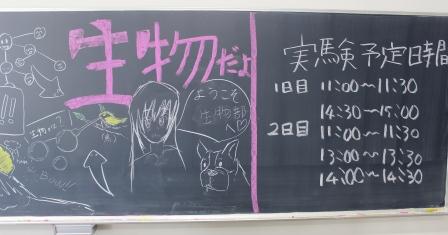 生物だよ
ようこそ
生物部
へ
!!
Bow!!
実験予定時間
1日目 11:00〜11:30
14:30〜15:00
2日目 11:00〜11:30
13:00〜13:30
14:00〜14:30